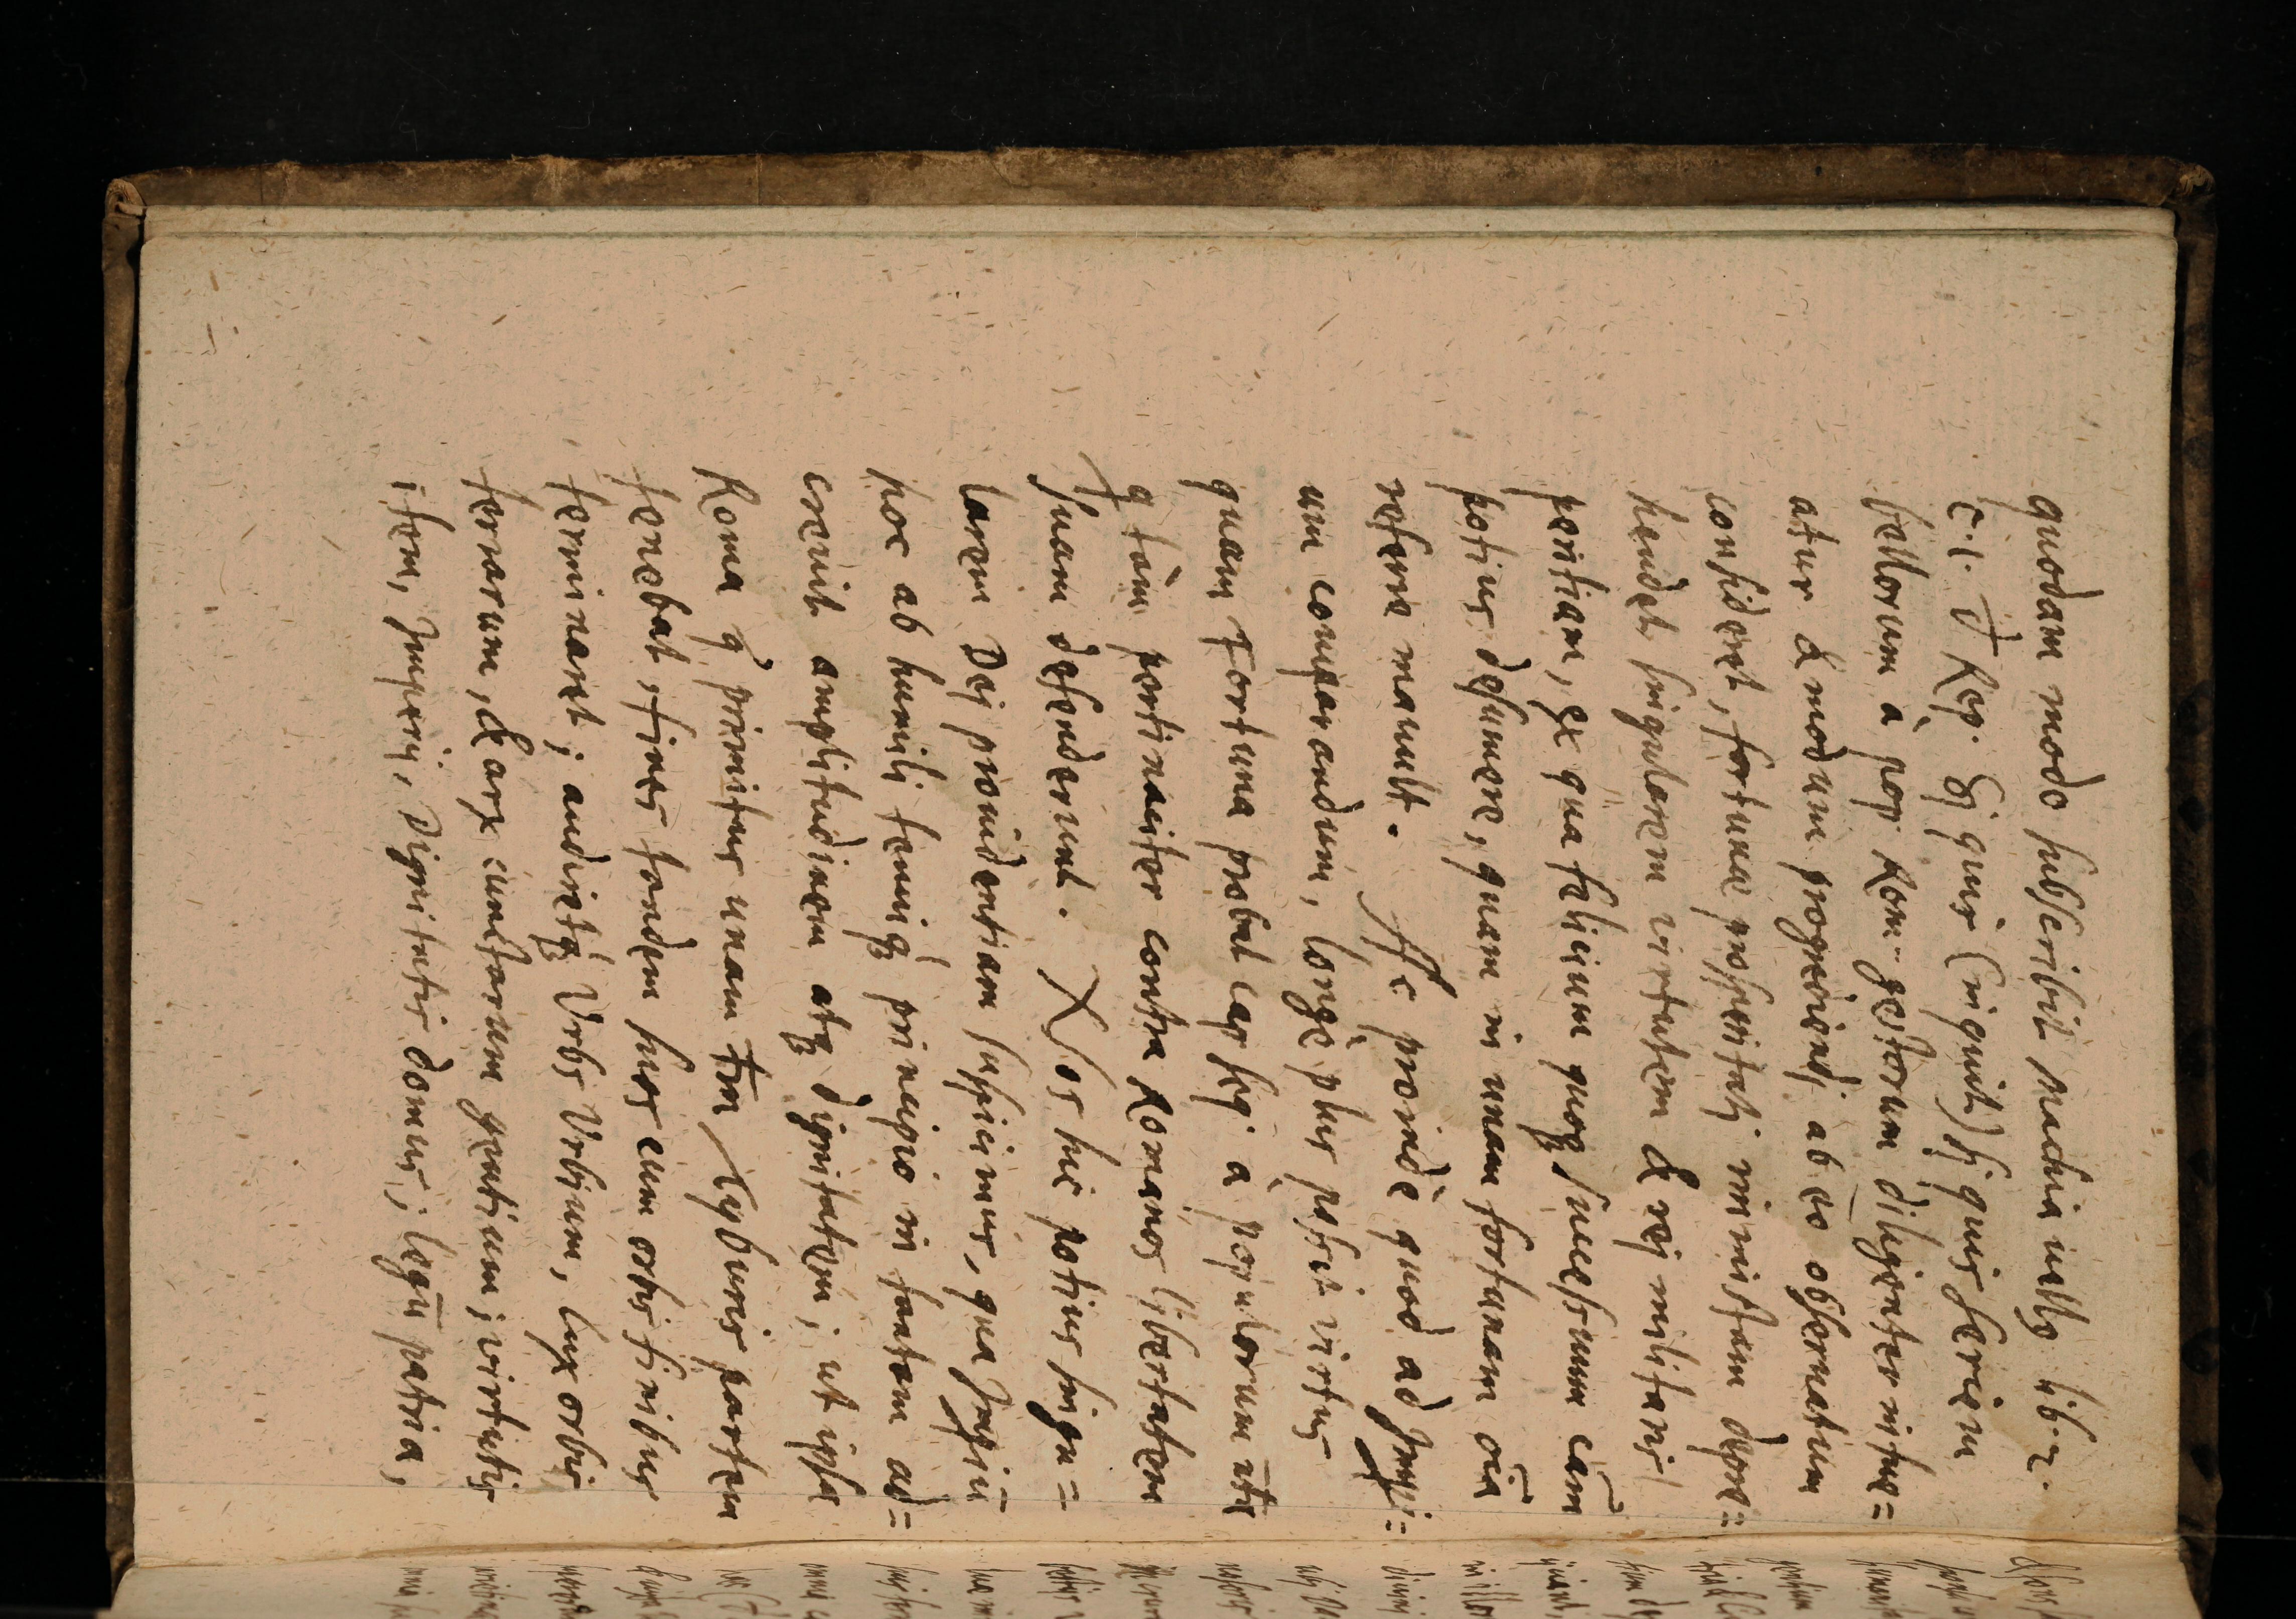 quodam modo subscribit Machiavellg lib. 2.
c. 1. d Rep. Si quis (inquit) si quis seriem
bellorum à pop Rom: gestorum diligenter intue=
atur & modum progrediendi ab eo observatum
consideret, fortunæ prosperitati ministram depre=
hendet singularem virtutem & rei militaris
peritiam, ex qua felicium quoq successuum cām
potius desumere, quam in unam fortunam oīa
referre mavult. Ac proinde quod ad Imperi=
um comparandum, longè plus possit virtus
quam Fortuna probat cap seq à populorum
q tàm pertinaciter contra Romanos libertatem
suam defenderunt. Nos hic potius singu=
larem Dei providentiam suspicimus, qua Imperiū
hoc ab humili tenuiq principio in tantam ad=
crevit amplitudinem atq dignitatem; ut ipsa
Roma q primitus unam tm Tyburis partem
tenebat, fines tandem suos cum orbis finibus
terminaret; audiretq Urbs Urbium, lux orbis
terrarum, & arx cunctarum gentium; virtutis
item, Imperij, Dignitatis domus; legū patria,